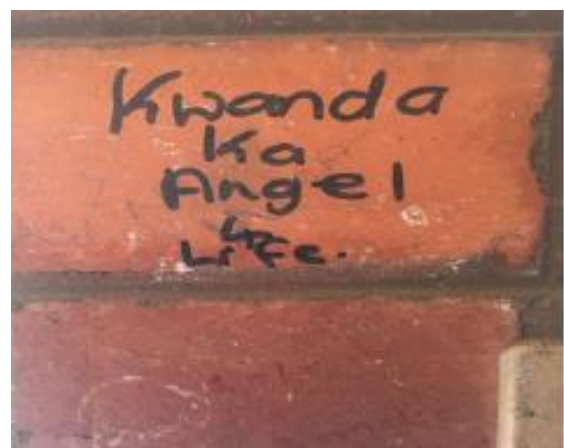 Kwanda
Ka
Angel
4
Life.